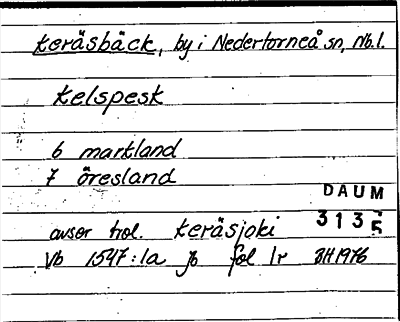 keräsbäck, by i Nedertorneå sn, Nb.l.
kelspesk
6 markland
7 öresland
DAUM
3135
avser trol. keräsjoki
Vb 1547:1a jb fol 1r BH1976